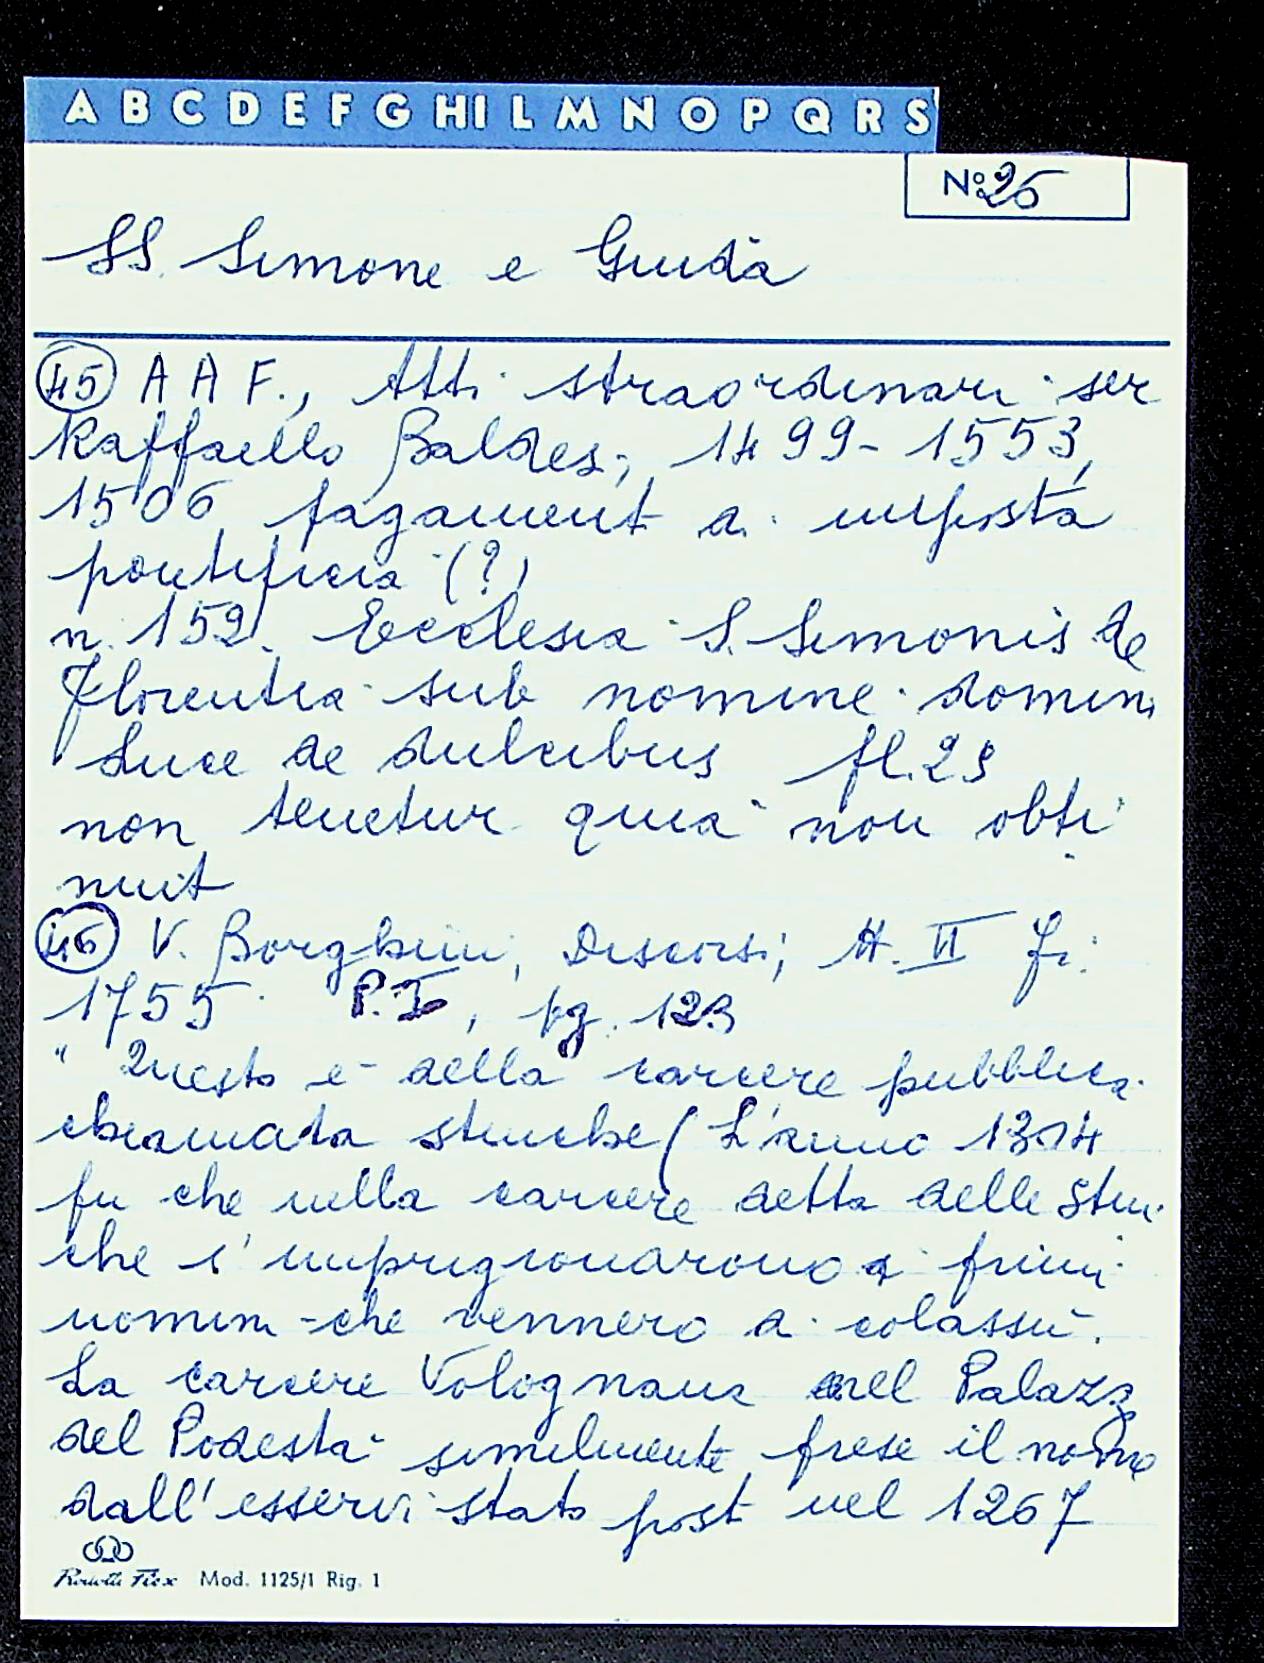 A B C D E F G H I L M N O P Q R S
N° 25
SS. Simone e Giuda
45 A A F., Atti straordinari ser
Raffaello Baldesi, 1499-1553,
1506 pagamenti a imposta
pontificia (?)
n. 152. Ecclesia S. Simonis de
Florentia sub nomine domini
Luce de dulcibus fl. 23
non tenetur quia non obti
nuit
46 V. Borghini, Discorsi, II Fi.
1755 P. I, pg. 123
"Questo è della carcere pubblica
chiamata stinche (L'anno 1304
fu che nella carcere detta delle Stin
che s'imprigionarono i primi
uomini che vennero a colassù.
La carcere Volognana nel Palazz
del Podestà similmente prese il nome
dall'esservi stato post nel 1267
Mod. 1125/1 Rig. 1